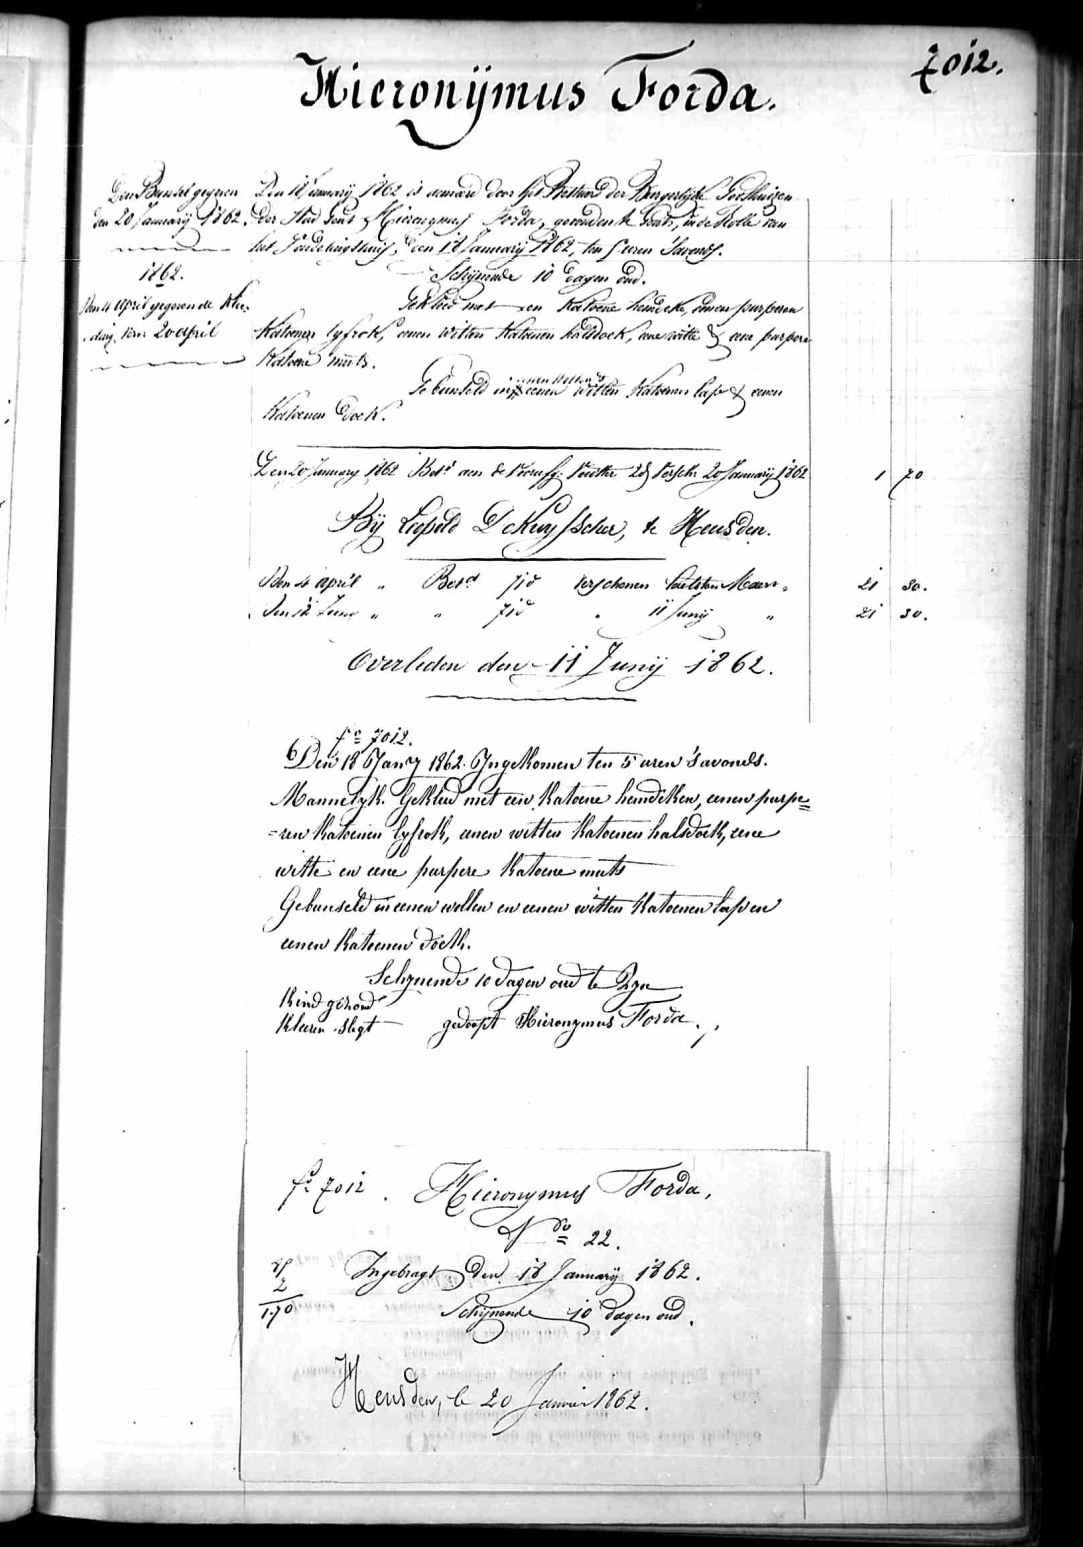 7012.
Hieronijmus Forda.
Den Bunsel gegeven
den 20 January 1862.
1862.
Den 4 april gegeven de klee-
ding van 20 april
Den 18 January 1862 is aenveird door het Bestuur der Burgerlijke Godshuizen
der Stad Gent Hieronymus Forda, gevonden te Gent, in de Rolle van
het Vondelingshuis, den 18 January 1862, ten 5 uren 'savonds.
Schijnende 10 dagen oud.
Gekleed met een katoene hemdeke, eenen purperen
katoenen lyfrok, eenen witten katoenen halsdoek, eene witte & eene purpere
katoene muts.
Gebunseld in eenen wollen & eenen witten katoenen lap & eenen
katoenen doek.
Den 20 January 1862 Bet.d aen de voester 2 dagen versch. 20 January 1862 1 70
Bij Leopold De Kuysscher, te Heusden.
Den 4 april " Bet.d verschenen Maert " 21 30.
Den 12 Juny " " " 11 Junij " 21 30.
Overleden den 11 Junij 1862.
fo 7012.
6 Den 18 Jan.y 1862. Ingekomen ten 5 uren 'savonds.
Mannelyk. Gekleed met een katoene hemdeken, eenen purpe=
=ren katoenen lyfrok, eenen witten katoenen halsdoek, eene
witte en eene purpere katoene muts
Gebunseld in eenen wollen en eenen witten katoenen lap en
eenen katoenen doek.
Schynende 10 dagen oud te zyn
Kind gezond
Kleeren slegt gedoopt Hieronymus Forda.
fo 7012. Hieronymus Forda,
No 22.
Ingebragt den 18 January 1862.
2
1.70
Schijnende 10 dagen oud.
Heusden, le 20 Janvier 1862.